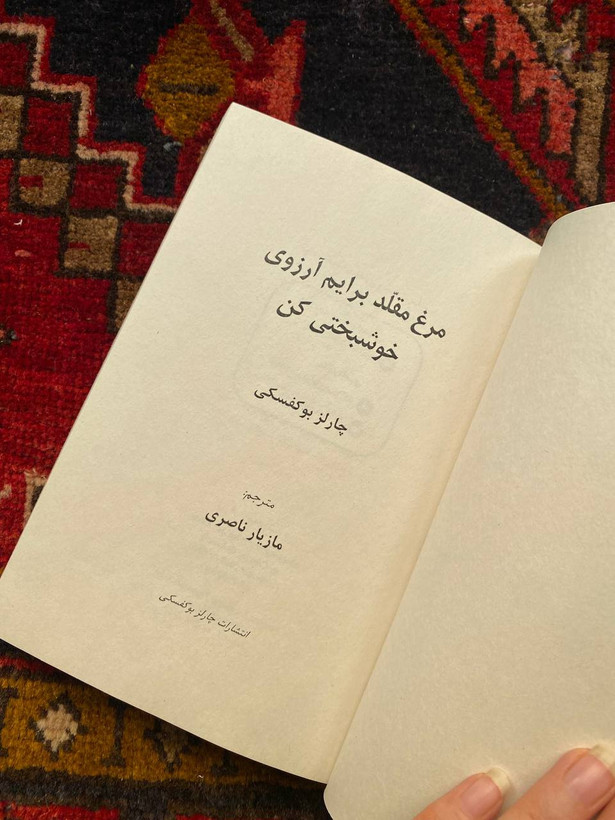 مرغ مقلّد برایم آرزوی
خوشبختی کن
چارلز بوکفسکی
مترجم:
مازیار ناصری
انتشارات چارلز بوکفسکی